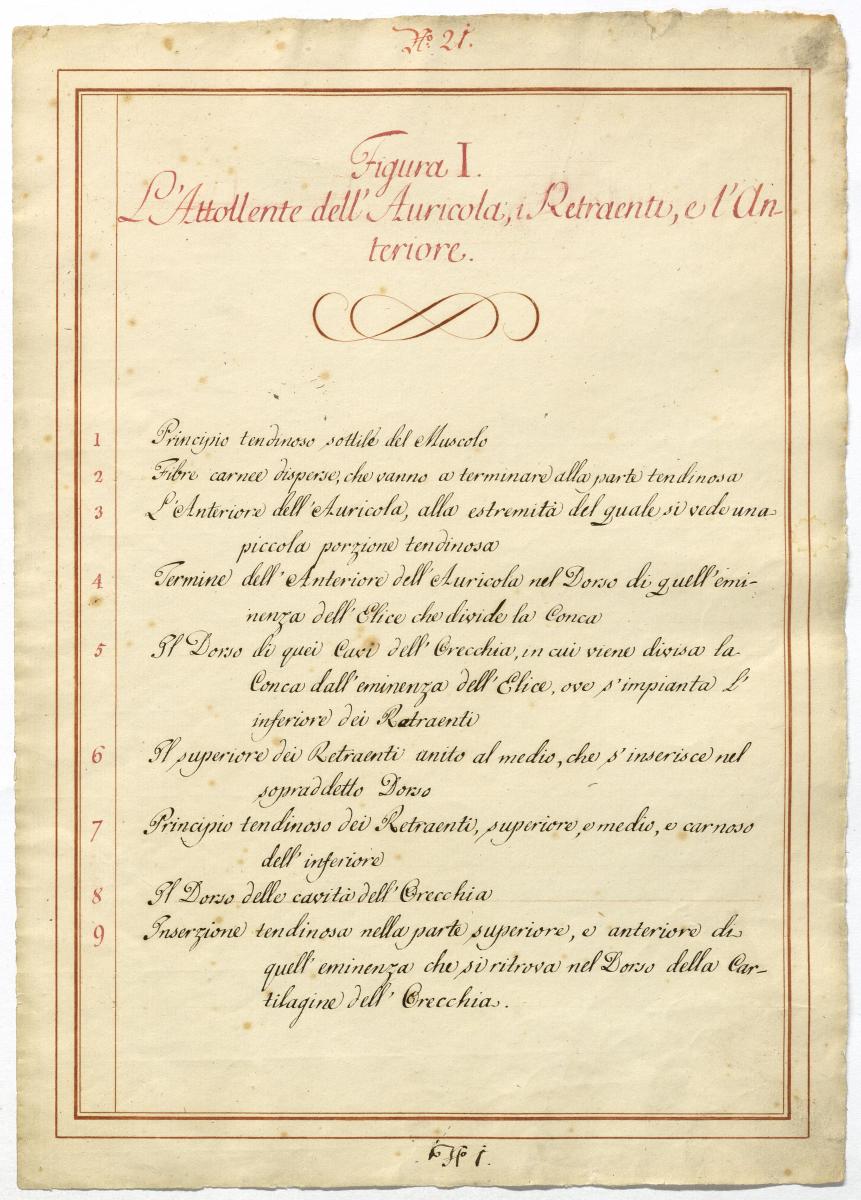 No. 21.
Figura I.
L'Attollente dell'Auricola, i Retraenti, e l'An-
teriore.
1 Principio tendinoso sottile del Muscolo
2 Fibre carnee disperse, che vanno a terminare alla parte tendinosa
3 L'Anteriore dell'Auricola, alla estremità del quale si vede una
piccola porzione tendinosa
4 Termine dell'Anteriore dell'Auricola nel Dorso di quell'emi-
nenza dell'Elice che divide la Conca
5 Il Dorso di quei Cavi dell'Orecchia, in cui viene divisa la
Conca dall'eminenza dell'Elice, ove s'impianta l'
inferiore dei Retraenti
6 Il superiore dei Retraenti unito al medio, che s'inserisce nel
sopraddetto Dorso
7 Principio tendinoso dei Retraenti, superiore, e medio, e carnoso
dell'inferiore
8 Il Dorso delle cavità dell'Orecchia
9 Inserzione tendinosa nella parte superiore, e anteriore di
quell'eminenza che si ritrova nel Dorso della Car-
tilagine dell'Orecchia.
No 1.